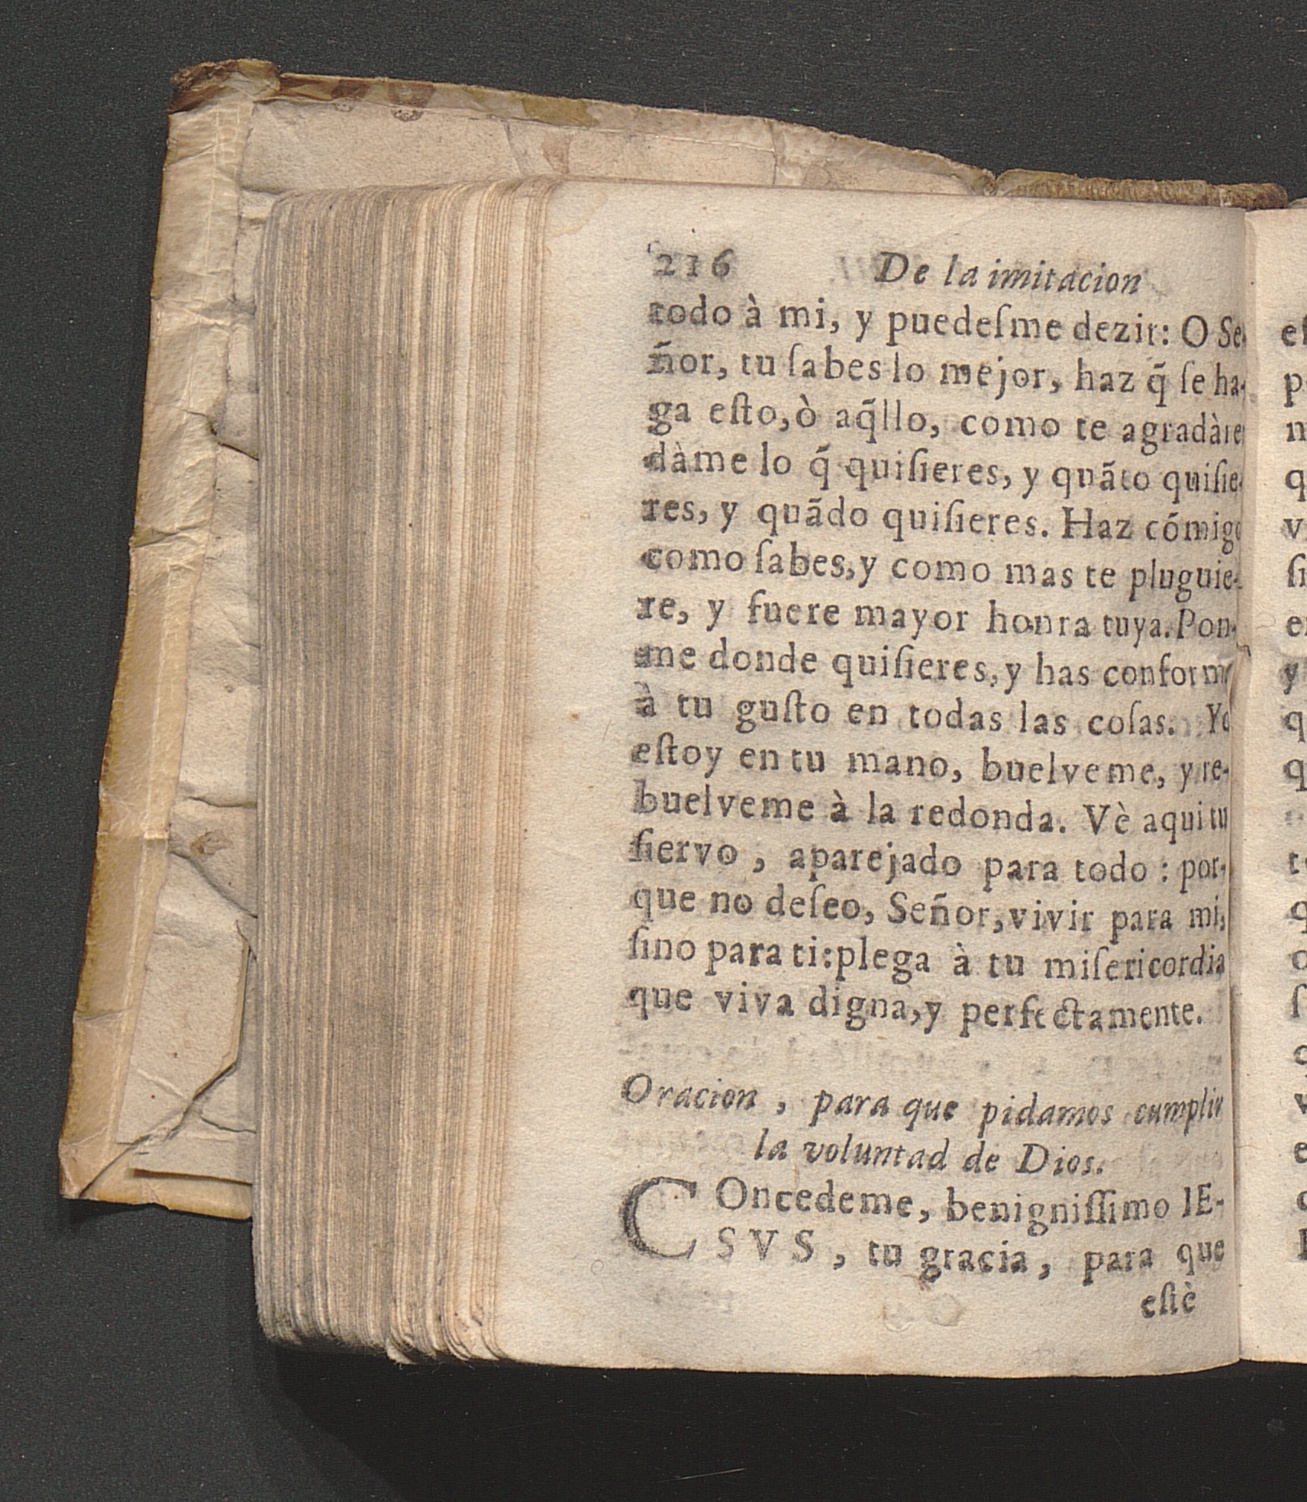 216 De la imitacion
todo à mi, y puedeſme dezir: O Se-
ñor, tu ſabes lo mejor, haz q̃ ſe ha-
ga eſto, ò aq̃llo, como te agradàre
dàme lo q̃ quiſieres, y quãto quiſie-
res, y quãdo quiſieres. Haz cómigo
como ſabes, y como mas te pluguie-
re, y fuere mayor honra tuya. Pon-
me donde quiſieres, y has conforme
à tu guſto en todas las coſas. Yo
eſtoy en tu mano, buelveme, y re-
buelveme à la redonda. Vè aqui tu
ſiervo, aparejado para todo: por-
que no deſeo, Señor, vivir para mi,
ſino para ti: plega à tu miſericordia
que viva digna, y perfectamente.
Oracion, para que pidamos cumplir
la voluntad de Dios.
COncedeme, benigniſſimo IE-
SVS, tu gracia, para que
eſtè